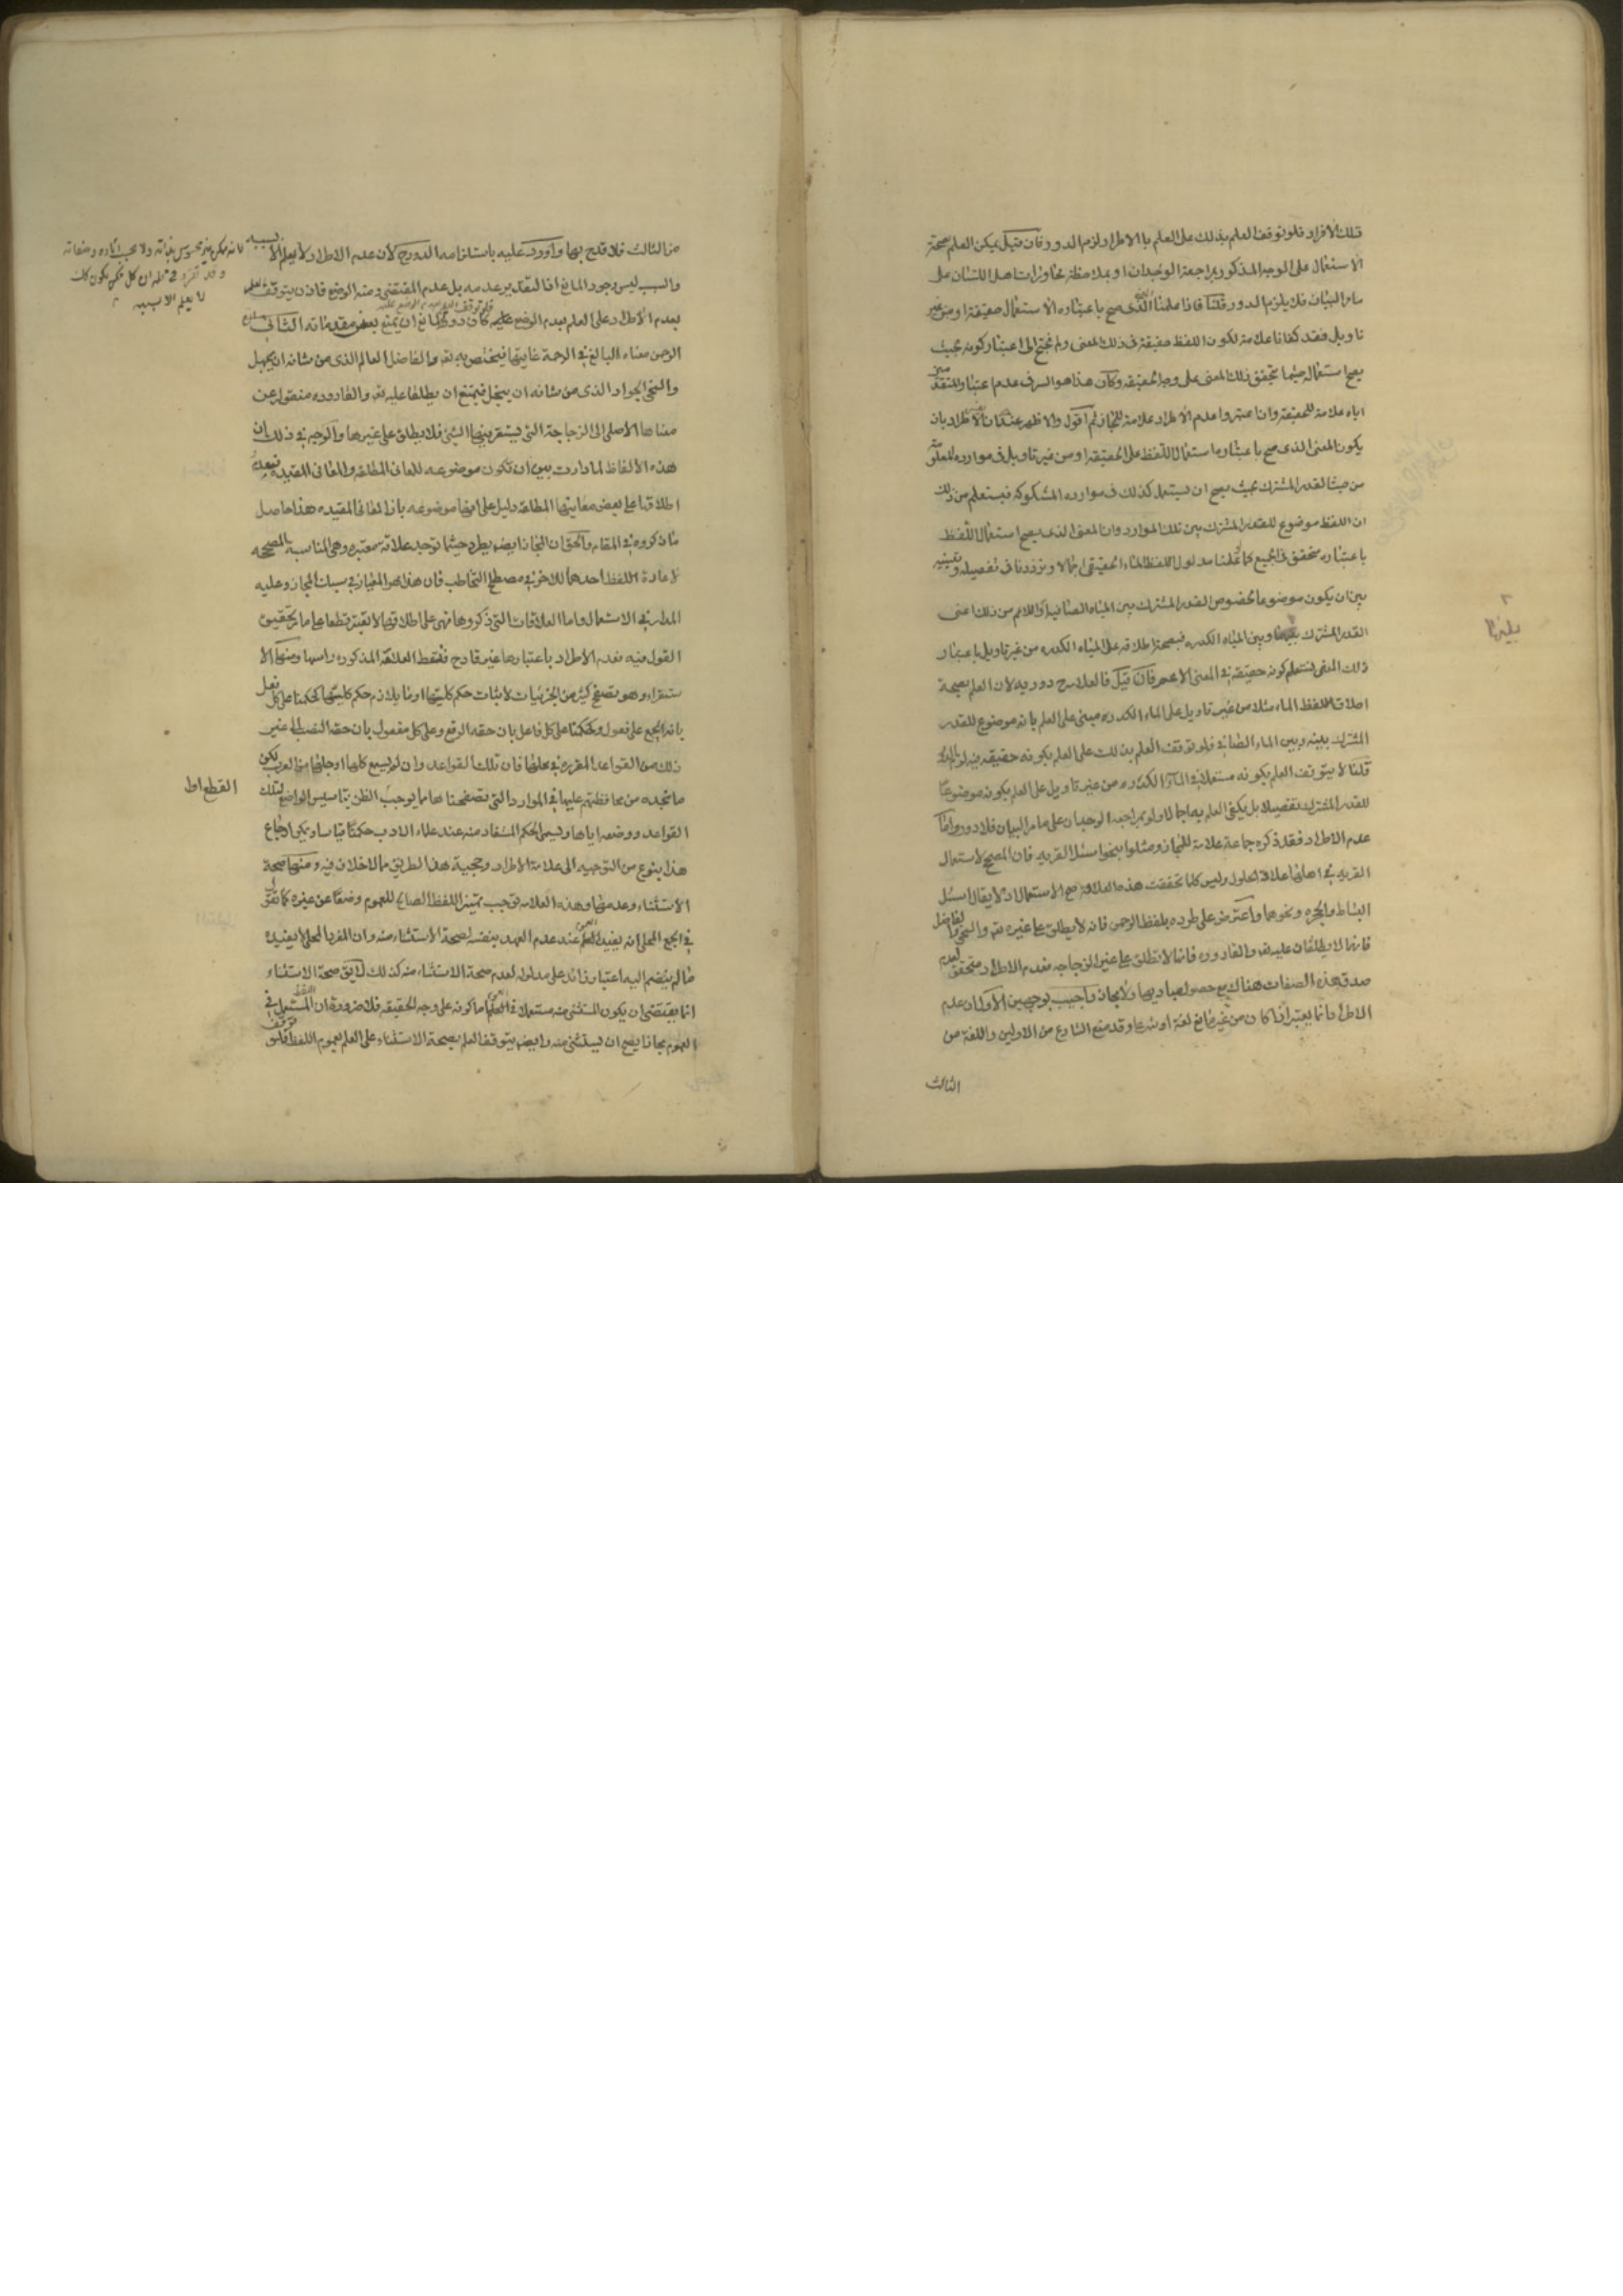 تلك الأفراد فلو توقف العلم بذلك على العلم بالاطراد لزم الدور فان قيل يمكن العلم بصحة
الاستعمال على الوجه المذكور بمراجعة الوجدان او بملاحظة محاورات اهل اللسان على
ما مر البيان فلا يلزم الدور قلنا فاذا علمنا الذى صح باعتباره الاستعمال حقيقة او من غير
تاويل فقد كفانا علامة لكون اللفظ حقيقة فى ذلك المعنى ولم نحتج الى اعتبار كونه بحيث
يصح استعماله حيثما تحقق ذلك المعنى على وجه الحقيقة وكأن هذا هو السر فى عدم اعتبار
اياه علامة للحقيقة وان اعتبروا عدم الاطراد علامة للمجاز ثم اقول والاظهر عندى ان الاطراد بان
يكون المعنى الذى صح باعتباره استعمال اللفظ على الحقيقة او من غير تاويل فى موارده المعلومة
من حيث القدر المشترك بحيث يصح ان يستعمل كذلك فى موارده المشكوكة فيستعلم من ذلك
ان اللفظ موضوع للقدر المشترك بين تلك الموارد وان المعنى الذى يصح استعمال اللفظ
باعتباره متحقق فى الجميع كما لو علمنا مدلول اللفظ الماء الحقيقى اجمالا وترددنا فى تفصيله وتعيينه
بين ان يكون موضوعا لخصوص القدر المشترك بين المياه الصافية او للاعم من ذلك اعنى
القدر المشترك بينها وبين المياه الكدرة فبصحة اطلاقه على المياه الكدرة من غير تاويل باعتبار
ذلك المعنى يستعلم كونه حقيقة فى المعنى الاعم فان قيل فالعلامة ح دورية لان العلم بصحة
اطلاق لفظ الماء مثلا من غير تاويل على الماء الكدرة مبنى على العلم بانه موضوع للقدر
المشترك بينه وبين الماء الصافى فلو توقف العلم بذلك على العلم بكونه حقيقة فيه لزم الدور
قلنا لا يتوقف العلم بكونه مستعملا فى الماء الكدرة من غير تاويل على العلم بكونه موضوعا
للقدر المشترك تفصيلا بل يكفى العلم به اجمالا ولو بمراجعة الوجدان على ما مر البيان فلا دور واما
عدم الاطراد فقد ذكره جماعة علامة للمجاز ومثلوا بنحو اسئل القرية فان المصحح لاستعمال
القرية فى اهلها علاقة الحلول وليس كلما تحققت هذه العلاقة صح الاستعمال اذ لا يقال اسئل
البساط والحجرة ونحوهما واعترض على طرده بلفظ الرحمن فانه لا يطلق على غيره تعالى والسخى والفاضل
فانهما لا يطلقان عليه تعالى والقارورة فانها لا تطلق على غير الزجاجة فعدم الاطراد متحقق لعدم
صدق هذه الصفات هناك مع حصول مباديها ولا مجاز واجيب بوجهين الاول ان عدم
الاطراد انما يعتبر اذا كان من غير مانع لغة او شرعا وقد منع الشارع من الاولين واللغة من
الثالث
من الثالث فلا قدح بها واورد عليه باستلزامه الدور ح لان عدم الاطراد لا يعلم الا بسببه
والسبب ليس وجود المانع اذ التقدير عدمه بل عدم المقتضى ومنه الوضع فاذن يتوقف العلم
بعدم الاطراد على العلم بعدم الوضع فلو توقف عليه كان دورا وللمانع ان يمنع بعض مقدماته الثانى
الرحمن معناه البالغ فى الرحمة غايتها فيختص به تعالى والفاضل العالم الذى من شانه ان يجهل
والسخى الجواد الذى من شانه ان يبخل فيمتنع ان يطلقا عليه تعالى والقارورة منقول عن
معناها الاصلى الى الزجاجة التى يستقر فيها الشئ فلا يطلق على غيرها والوجه فى ذلك ان
هذه الالفاظ لما دارت بين ان تكون موضوعة للمعانى المطلقة والمعانى المقيدة
اطلاقها على بعض معانيها المطلقة دليل على انها موضوعة بازاء المعانى المقيدة هذا حاصل
ما ذكروه فى المقام والحق ان المجاز ايضا يطرد حيثما توجد علاقة معتبرة وهى المناسبة المصححة
لاعارة اللفظ احدهما للاخر فى مصطلح التخاطب فان هذا هو المعيار فى سبك المجاز وعليه
المدار فى الاستعمال واما العلاقات التى ذكروها فهى على اطلاقها لا تعتبر قطعا على ما مر تحقيق
القول فيه فعدم الاطراد باعتبارها غير قادح فتسقط العلامة المذكورة راسا ومنها الا
ستقراء وهو تصفح كثير من الجزئيات لاثبات حكم كليتها او ما يلازم حكم كليتها كحكمنا على كل فعل
بانه يجمع على فعول وكحكمنا على كل فاعل بان حقه الرفع وعلى كل مفعول بان حقه النصب الى غير
ذلك من القواعد المقررة فى محلها فان تلك القواعد وان لم يسمع كلها او جلها من العرب لكن
ما نجده من محافظتهم عليها فى الموارد التى تصفحناها مما يوجب الظن بتاسيس الواضع لتلك
القواعد ووضعه اياها ويسمى الحكم المستفاد منه عند علماء الادب حكما قياسا ويمكن ارجاع
هذا بنوع من التوجيه الى علامة الاطراد وحجية هذا الطريق مما لا خلاف فيه ومنها صحة
الاستثناء وعدمها وهذه العلامة توجب تمييز اللفظ الصالح للعموم وضعا عن غيره كما تقرر
فى الجمع المحلى انه يفيد العموم عند عدم العهد بنفسه لصحة الاستثناء منه وان المفرد المحلى لا يفيده
ما لم ينضم اليه اعتبار زائد على مدلوله لعدم صحة الاستثناء منه كذلك لا يق صحة الاستثناء
انما يقتضى ان يكون المستثنى منه مستعملا فى العموم اما كونه على وجه الحقيقة فلا ضرورة ان اللفظ المستعمل فى
العموم مجازا يصح ان يستثنى منه وايضا يتوقف العلم بصحة الاستثناء على العلم بعموم اللفظ فلو توقف
لا يعلم الا بسببه
القطع اط